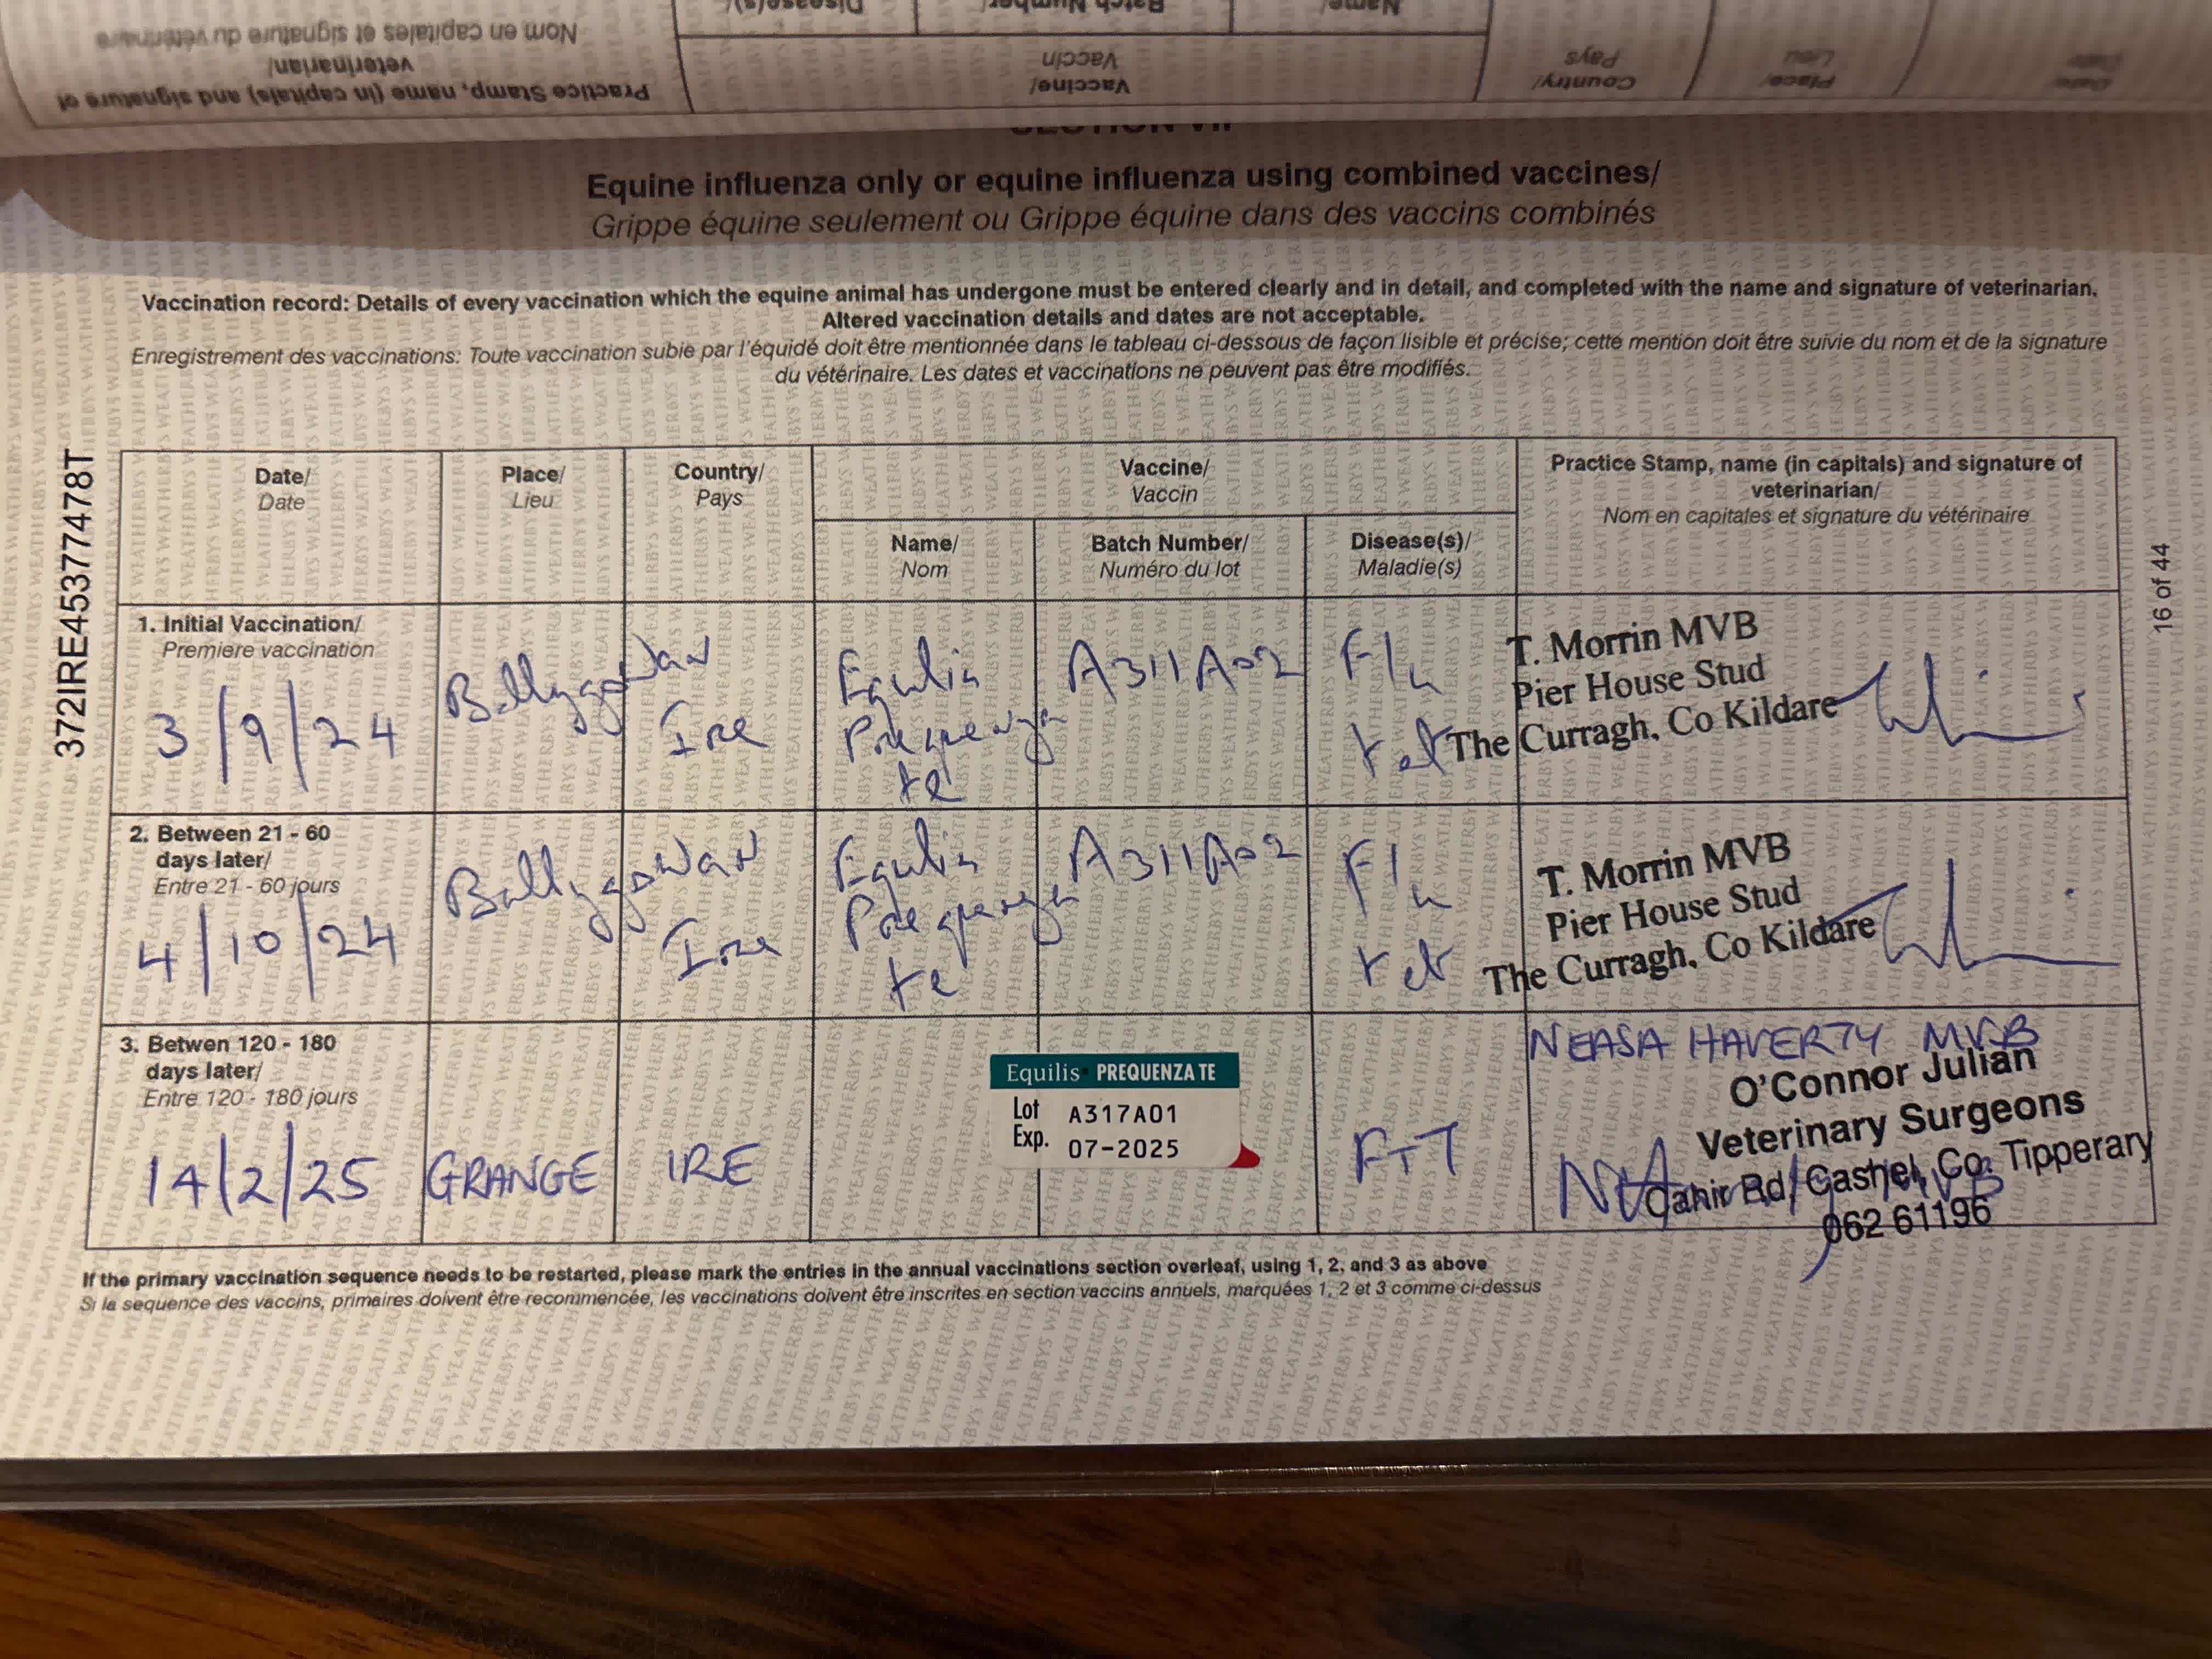 Practice Stamp, name (in capitals) and signature of
veterinarian/
Nom en capitales et signature du vétérinaire
Vaccine/
Vaccin
Name/
Batch Number/
Disease(s)/
Country/
Pays
Place/
Lieu
Date
Date
SECTION VII
Equine influenza only or equine influenza using combined vaccines/
Grippe équine seulement ou Grippe équine dans des vaccins combinés
Vaccination record: Details of every vaccination which the equine animal has undergone must be entered clearly and in detail, and completed with the name and signature of veterinarian.
Altered vaccination details and dates are not acceptable.
Enregistrement des vaccinations: Toute vaccination subie par l'équidé doit être mentionnée dans le tableau ci-dessous de façon lisible et précise; cette mention doit être suivie du nom et de la signature
du vétérinaire. Les dates et vaccinations ne peuvent pas être modifiés.
372IRE45377478T
16 of 44
Date/
Date
Place/
Lieu
Country/
Pays
Vaccine/
Vaccin
Name/
Nom
Batch Number/
Numéro du lot
Disease(s)/
Maladie(s)
Practice Stamp, name (in capitals) and signature of
veterinarian/
Nom en capitales et signature du vétérinaire
1. Initial Vaccination/
Premiere vaccination
3/9/24
Ballygowan
Ire
Equilis
Prequenza
te
A311A02
Flu
tet
T. Morrin MVB
Pier House Stud
The Curragh, Co Kildare
2. Between 21 - 60
days later/
Entre 21 - 60 jours
4/10/24
Ballygowan
Ire
Equilis
Prequenza
te
A311A02
Flu
tet
T. Morrin MVB
Pier House Stud
The Curragh, Co Kildare
3. Betwen 120 - 180
days later/
Entre 120 - 180 jours
14/2/25
GRANGE
IRE
Equilis PREQUENZA TE
Lot A317A01
Exp. 07-2025
F+T
NEASA HAVERTY MVB
O'Connor Julian
Veterinary Surgeons
Cahir Rd, Cashel, Co. Tipperary
062 61196
If the primary vaccination sequence needs to be restarted, please mark the entries in the annual vaccinations section overleaf, using 1, 2, and 3 as above
Si la sequence des vaccins, primaires doivent être recommencée, les vaccinations doivent être inscrites en section vaccins annuels, marquées 1, 2 et 3 comme ci-dessus